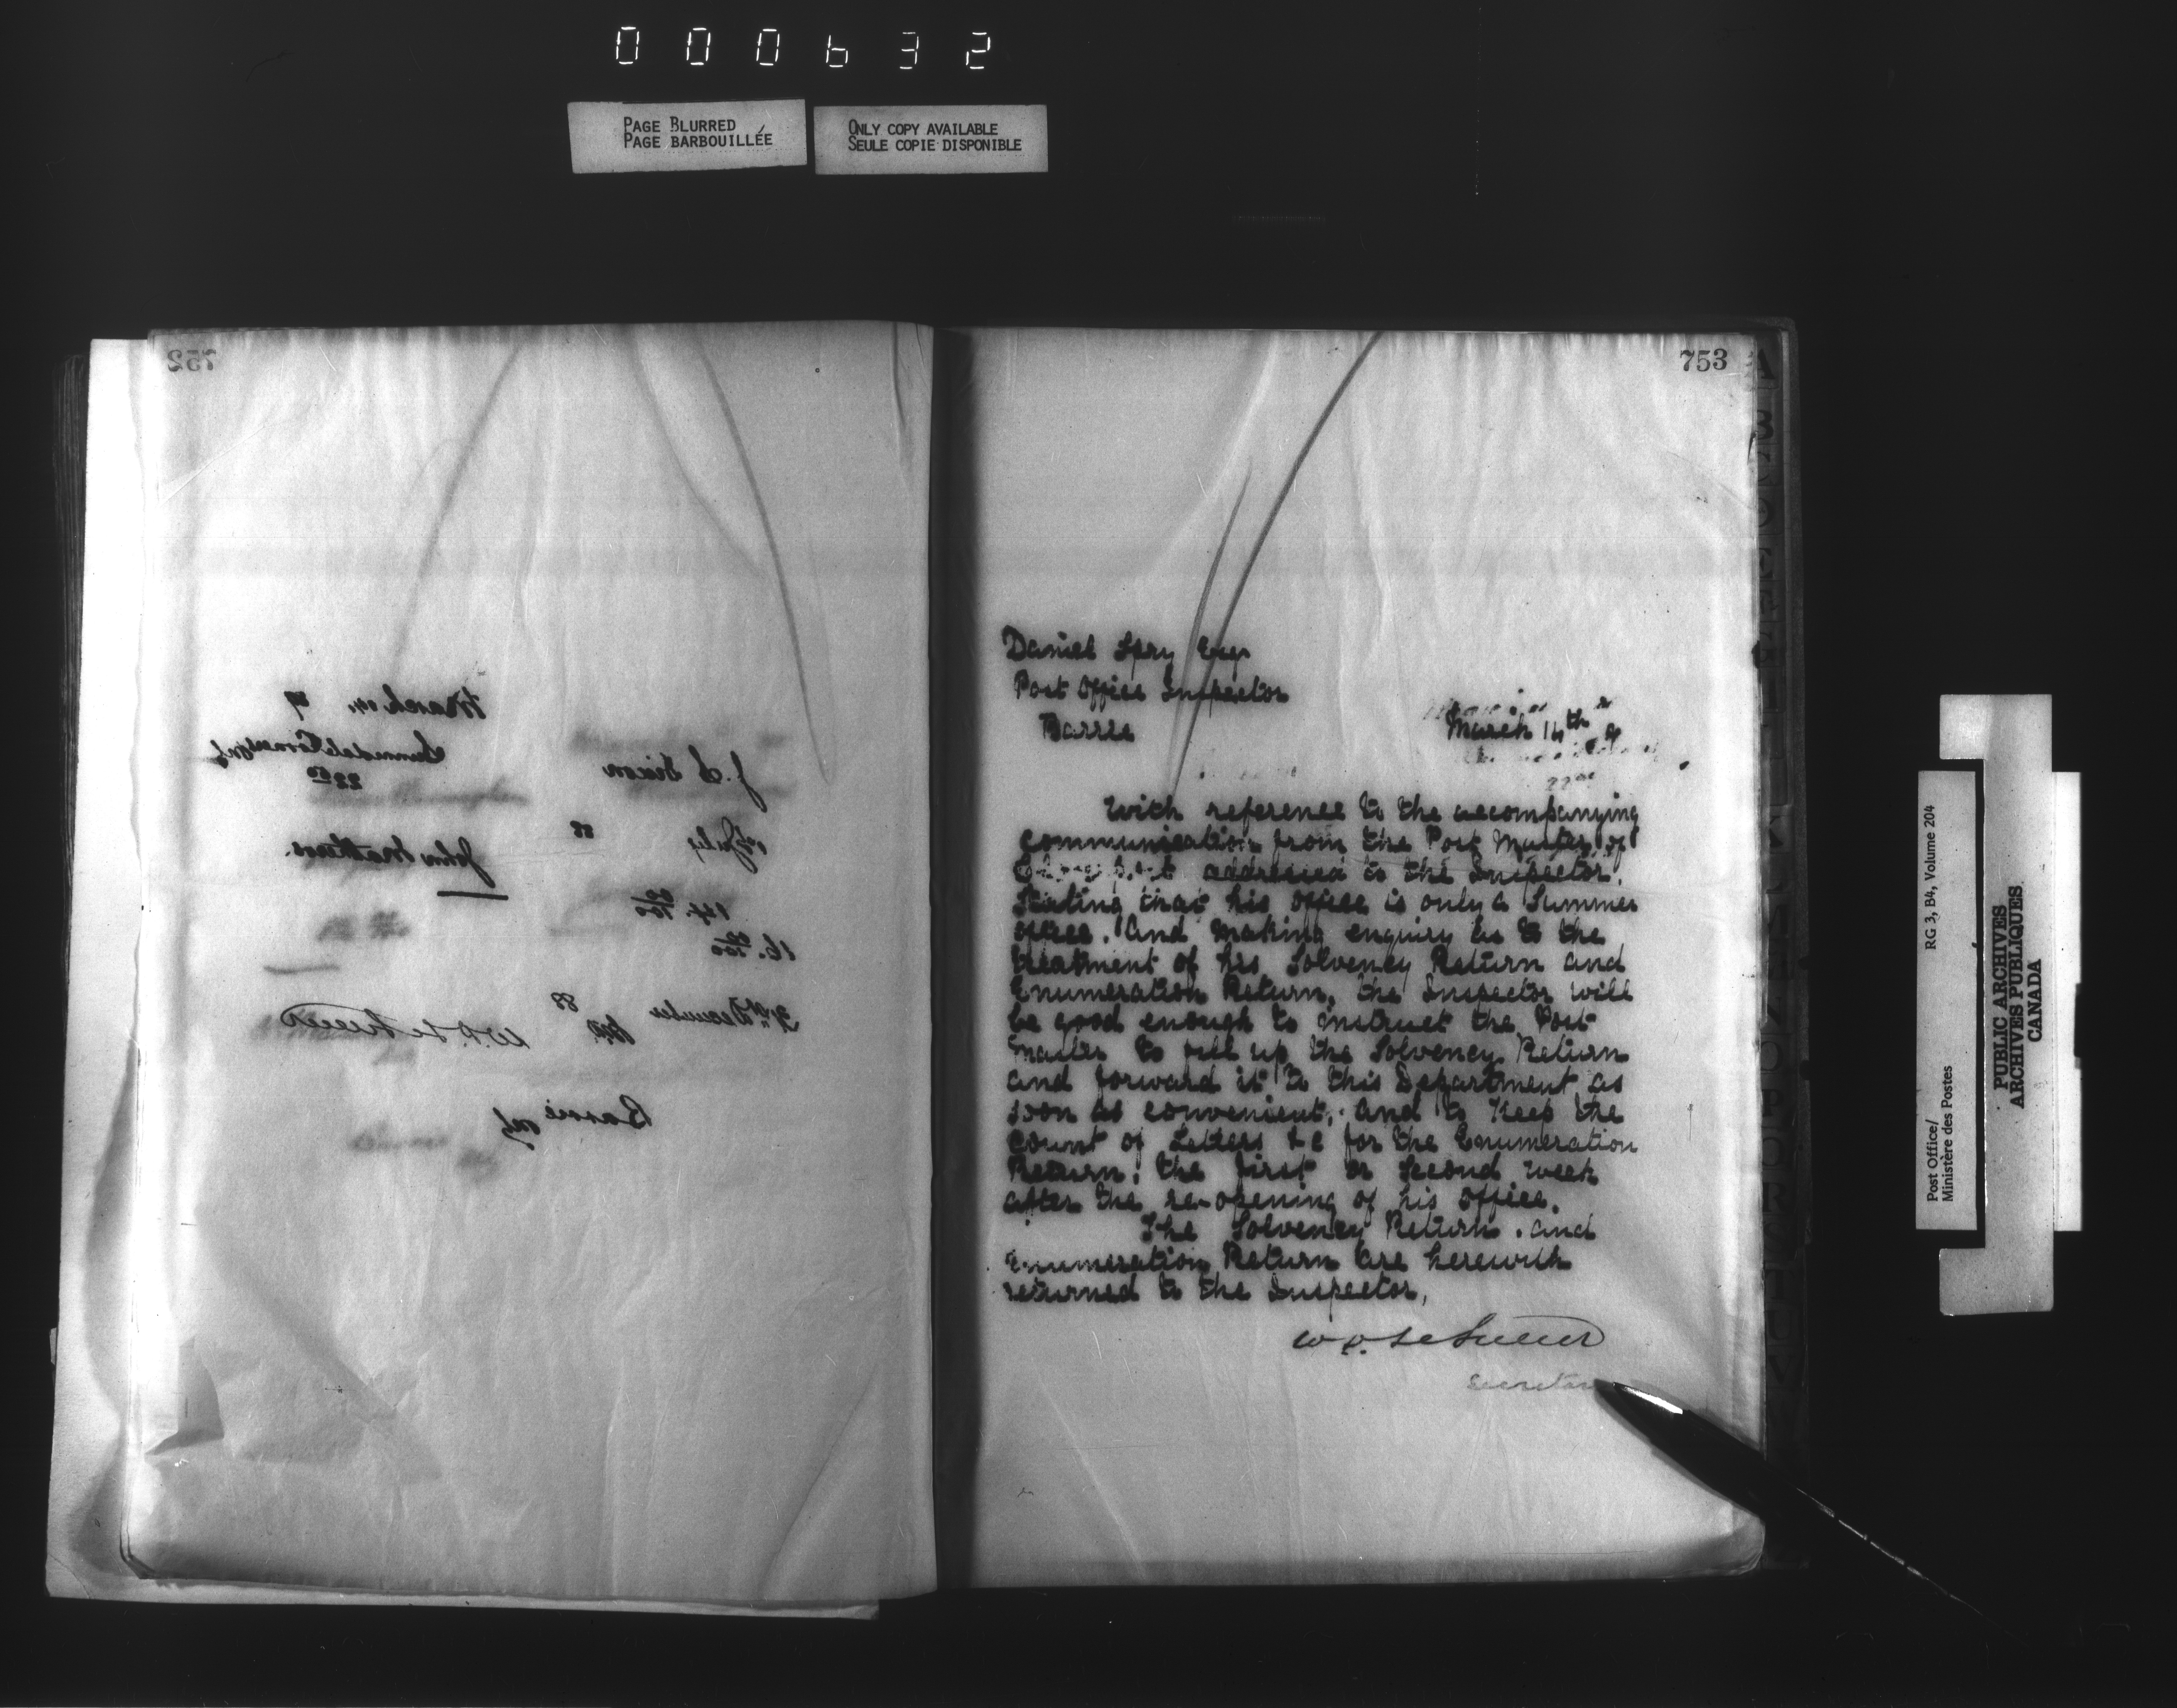 000632
PAGE BLURRED
PAGE BARBOUILLÉE
ONLY COPY AVAILABLE
SEULE COPIE DISPONIBLE
752
March 14, 9
Sunnidale Corners Ont
22 50
J. S. Dixon
1st July 88
John Mathers.
14. 00/100
16. 00/100
31st December 88
W.D. LeSueur
Barrie Ont
753
Daniel Spry Esqr
Post Office Inspector
Barrie
March 14th 9
With reference to the accompanying
communication from the Post Master of
addressed to the Inspector,
Stating that his office is only a Summer
office. And making enquiry as to the
treatment of his Solvency Return and
Enumeration Return, the Inspector will
be good enough to instruct the Post
master to fill up the Solvency Return
and forward it to this Department as
soon as convenient, and to Keep the
Count of Letters &c for the Enumeration
Return, the first or Second week
after the re-opening of his office.
The Solvency Return . and
Enumeration Return are herewith
returned to the Inspector,
W D LeSueur
Secretar
Post Office/
Ministère des Postes
RG 3, B4, Volume 204
PUBLIC ARCHIVES
ARCHIVES PUBLIQUES
CANADA